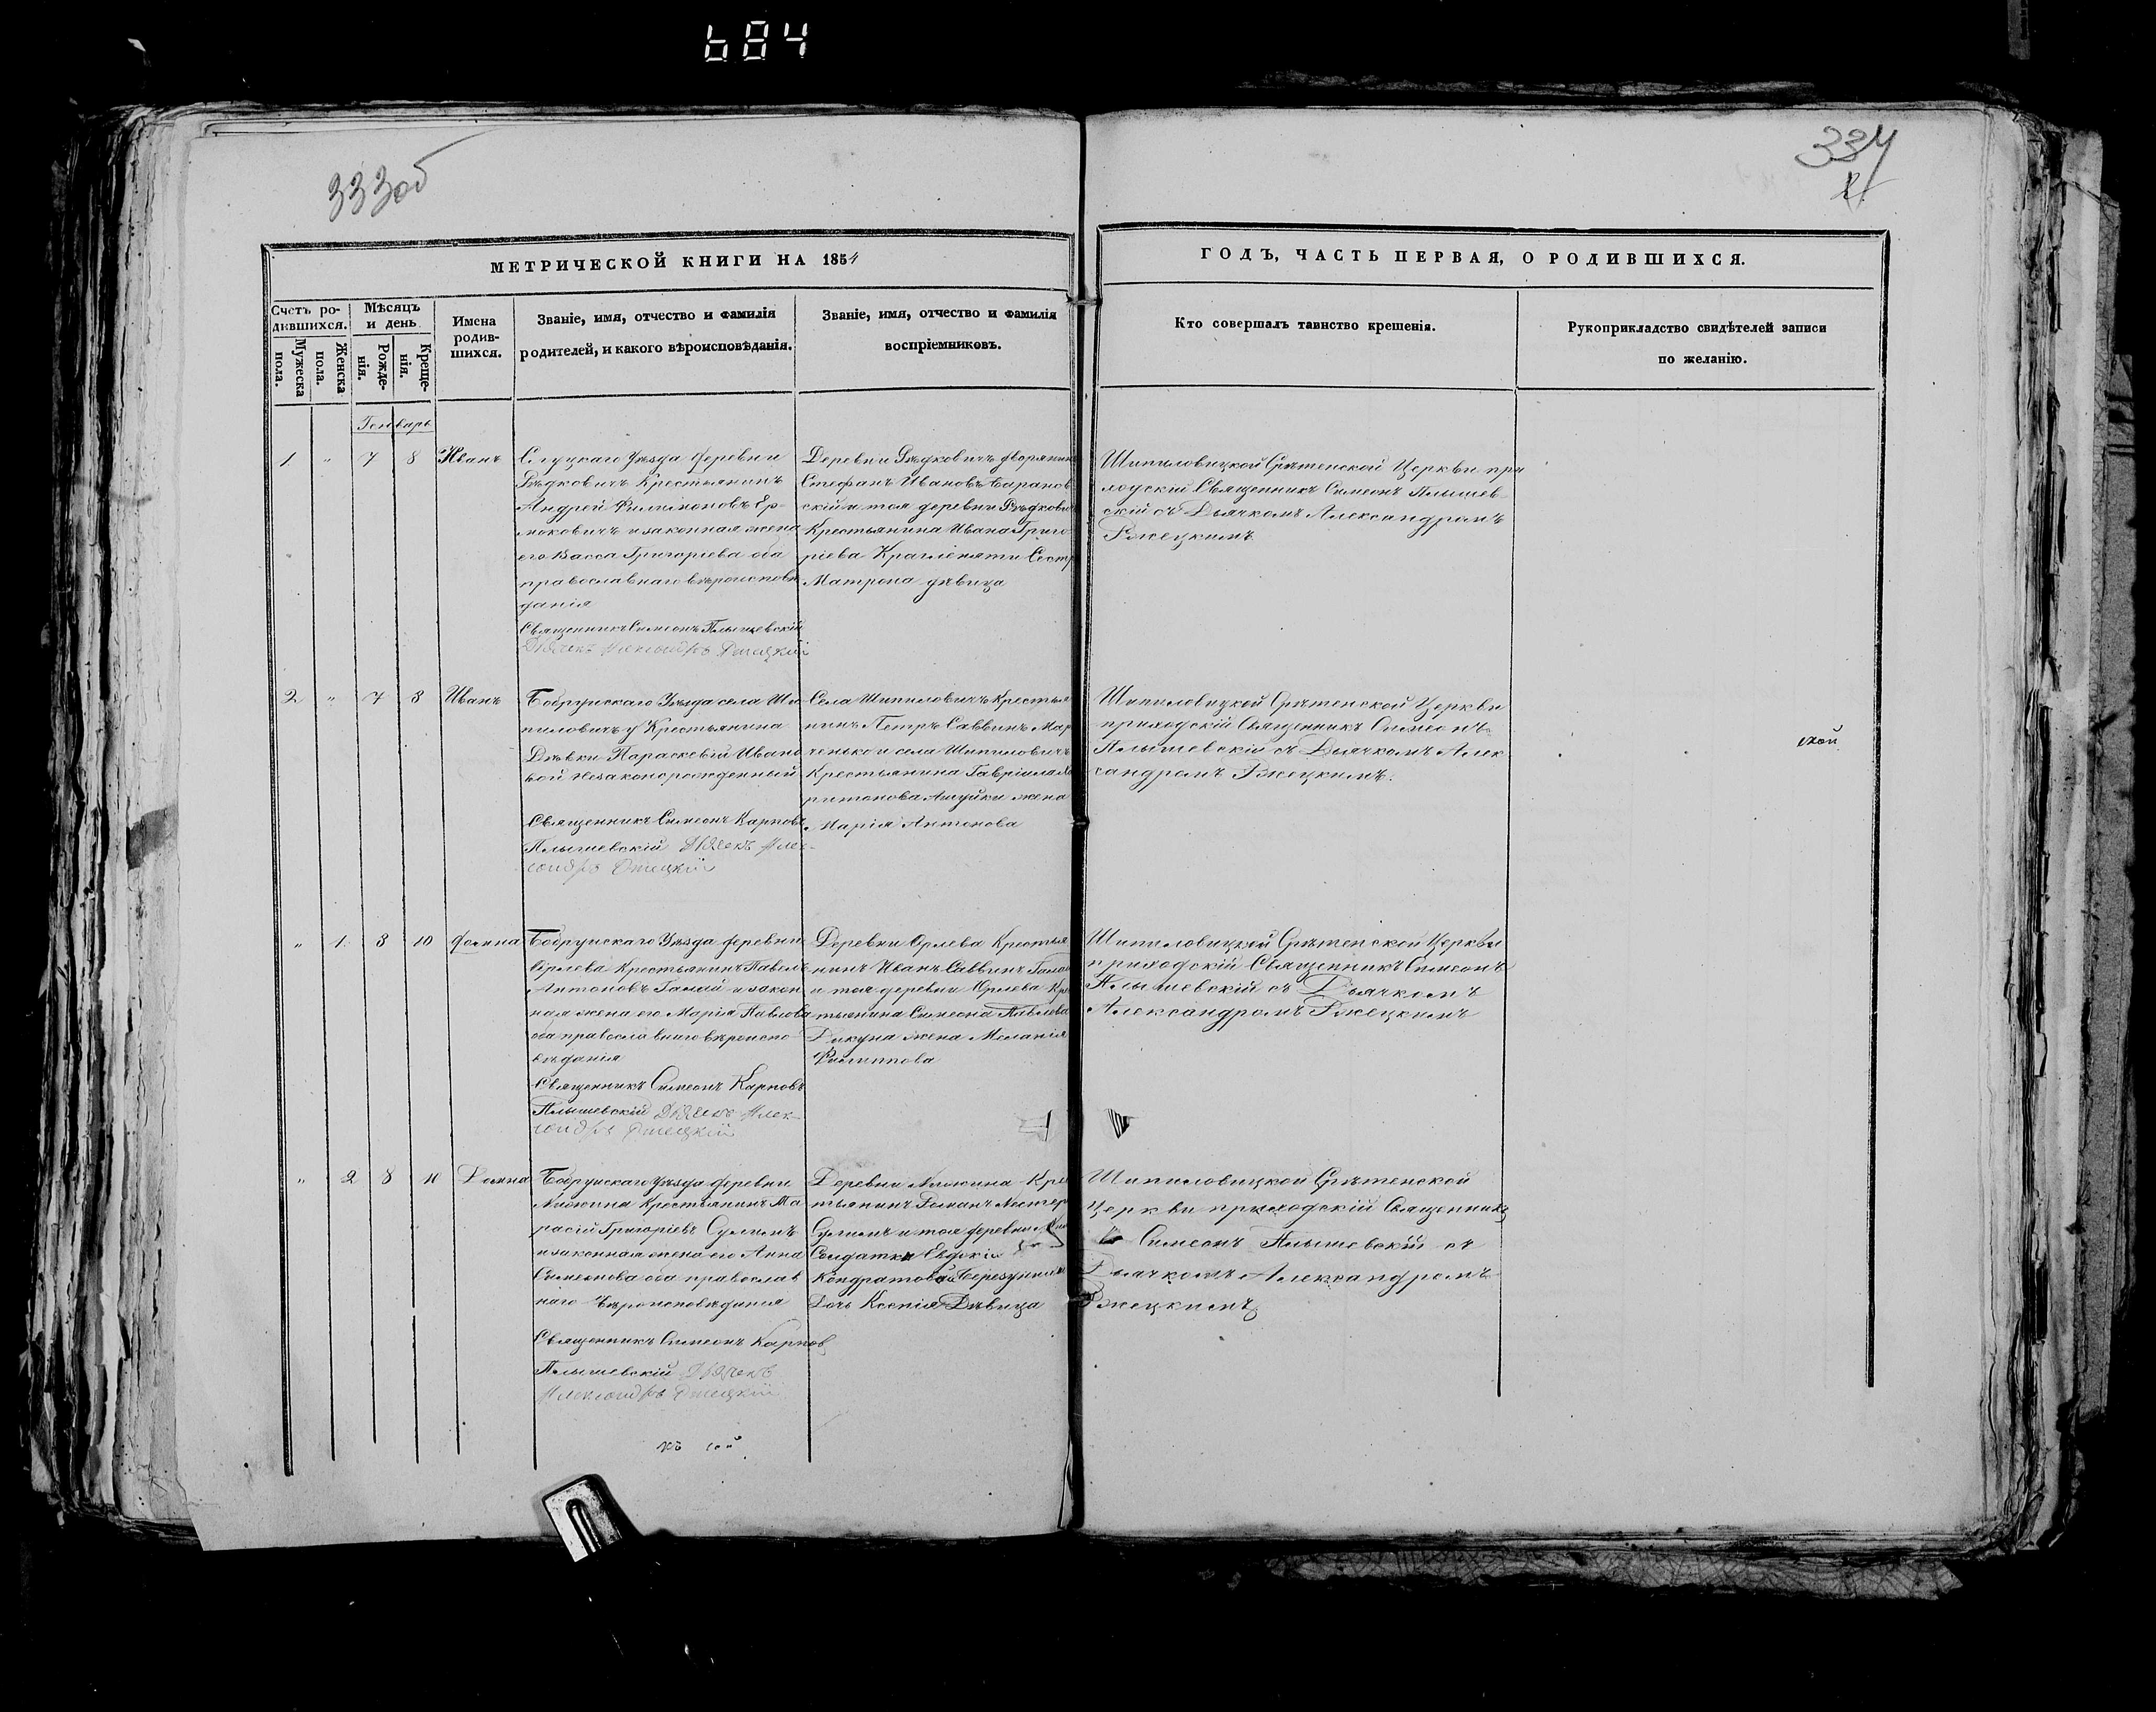 684
333об
334
МЕТРИЧЕСКОЙ КНИГИ НА 1854
ГОДЪ, ЧАСТЬ ПЕРВАЯ, О РОДИВШИХСЯ.
Счетъ ро-
дившихся.
Мужеска
пола.
Женска
пола.
Мѣсяцъ
и день
Рожде-
нія.
Креще-
нія.
Имена
родив-
шихся.
Званіе, имя, отчество и фамилія
родителей, и какого вѣроисповѣданія.
Званіе, имя, отчество и фамилія
воспріемниковъ.
Кто совершалъ таинство крещенія.
Рукоприкладство свидѣтелей записи
по желанію.
Генварь
1 " 7 8 Иванъ
Слуцкаго Уѣзда деревни
Крестьянинъ
Андрей Филимоновъ Ер-
моковичъ и законная жена
его Васса Григоріева оба
православнаго вѣроисповѣ
данія
Священникъ Симеонъ Плышевскій
Дьячекъ Александръ Ржецкій
Деревни дворянинъ
Стефанъ Ивановъ Баранов
скій и тоя деревни
Крестьянина Ивана Григо
ріева Сестра
Матрона дѣвица
Шипиловицкой Срѣтенской Церкви при
ходскій Священникъ Симеонъ Плышев
скій съ Дьячкомъ Александромъ
Ржецкимъ
2 " 7 8 Иванъ
Бобруйскаго Уѣзда села Ши
пиловичъ у Крестьянина
Дѣвки Параскевіи Ивано
вой незаконорожденный
Священникъ Симеонъ Карповъ
Плышевскій Дьячекъ Алек-
сандръ Ржецкій
Села Шипиловичъ Крестья
нинъ Петръ Саввинъ Мар
ченько и села Шипиловичъ
Крестьянина Гавріила Ха
ритонова жена
Марія Антонова
Шипиловицкой Срѣтенской Церкви
приходскій Священникъ Симеонъ
Плышевскій съ Дьячкомъ Алек
сандромъ Ржецкимъ.
" 1 8 10 Домна
Бобруйскаго Уѣзда деревни
Орлева Крестьянинъ Павелъ
Антоновъ Гамай и закон
ная жена его Марія Павлова
оба православнаго вѣроиспо
вѣданія
Священникъ Симеонъ Карповъ
Плышевскій Дьячекъ Алек-
сандръ Ржецкій
Деревни Орлева Крестья
нинъ Иванъ Саввинъ
и тоя деревни Орлева Кре
стьянина Симеона Павлова
Дикуна жена Меланія
Филиппова
Шипиловицкой Срѣтенской Церкви
приходскій Священникъ Симеонъ
Плышевскій съ Дьячкомъ
Александромъ Ржецкимъ
" 2 8 10 Домна
Бобруйскаго Уѣзда деревни
Крестьянинъ Та
расій Григоріевъ Сулимъ
и законная жена его Анна
Симеонова оба православ
наго Вѣроисповѣданія
Священникъ Симеонъ Карпов
Плышевскій Дьячекъ
Александръ Ржецкій
Деревни Кре
стьянинъ Романъ Нестер
Сулимъ и тоя деревни
Солдатки Евдокіи
Кондратовой
Дочь Ксенія Дѣвица
Шипиловицкой Срѣтенской
Церкви приходскій Священникъ
Симеонъ Плышевскій съ
Дьячкомъ Александромъ
Ржецкимъ